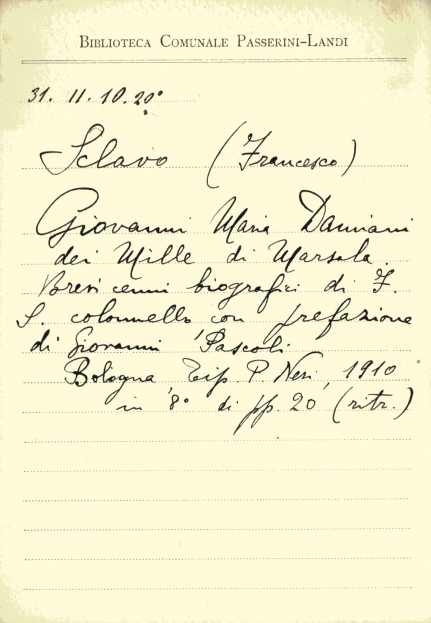 BIBLIOTECA COMUNALE PASSERINI-LANDI
31. 11. 10. 20°
Sclavo (Francesco)
Giovanni Maria Damiani
dei Mille di Marsala.
Brevi cenni biografici di F.
S. colonnello con prefazione
di Giovanni Pascoli
Bologna, Tip. P. Neri, 1910
in 8° di pp. 20 (ritr.)